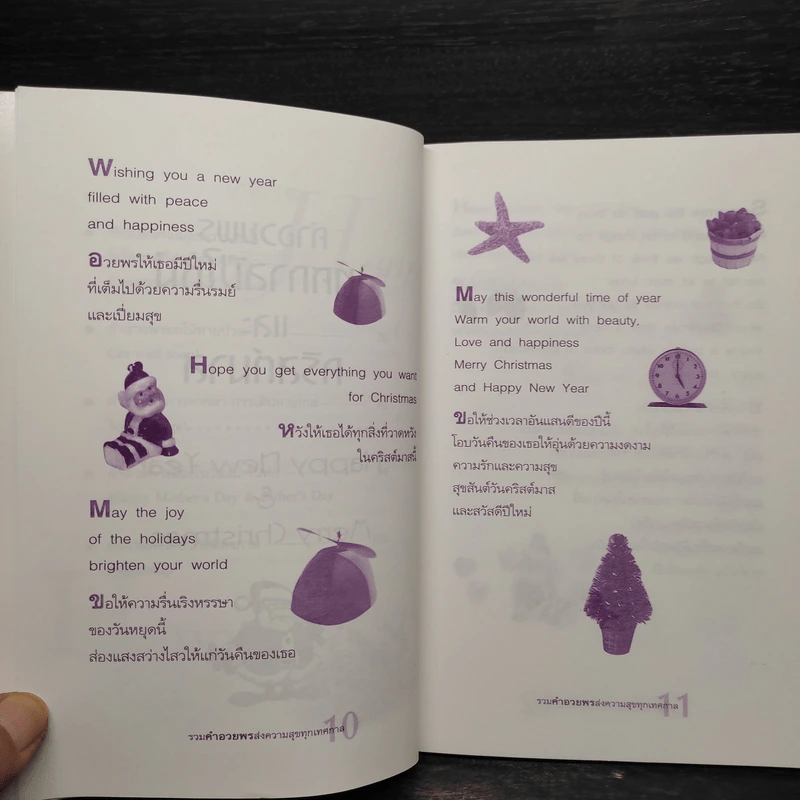 Wishing you a new year
filled with peace
and happiness
อวยพรให้เธอมีปีใหม่
ที่เต็มไปด้วยความรื่นรมย์
และเปี่ยมสุข
Hope you get everything you want
for Christmas
หวังให้เธอได้ทุกสิ่งที่วาดหวัง
ในคริสต์มาสนี้
May the joy
of the holidays
brighten your world
ขอให้ความรื่นเริงหรรษา
ของวันหยุดนี้
ส่องแสงสว่างไสวให้แก่วันคืนของเธอ
รวมคำอวยพรส่งความสุขทุกเทศกาล 10
May this wonderful time of year
Warm your world with beauty,
Love and happiness
Merry Christmas
and Happy New Year
ขอให้ช่วงเวลาอันแสนดีของปีนี้
โอบวันคืนของเธอให้อุ่นด้วยความงดงาม
ความรักและความสุข
สุขสันต์วันคริสต์มาส
และสวัสดีปีใหม่
รวมคำอวยพรส่งความสุขทุกเทศกาล 11